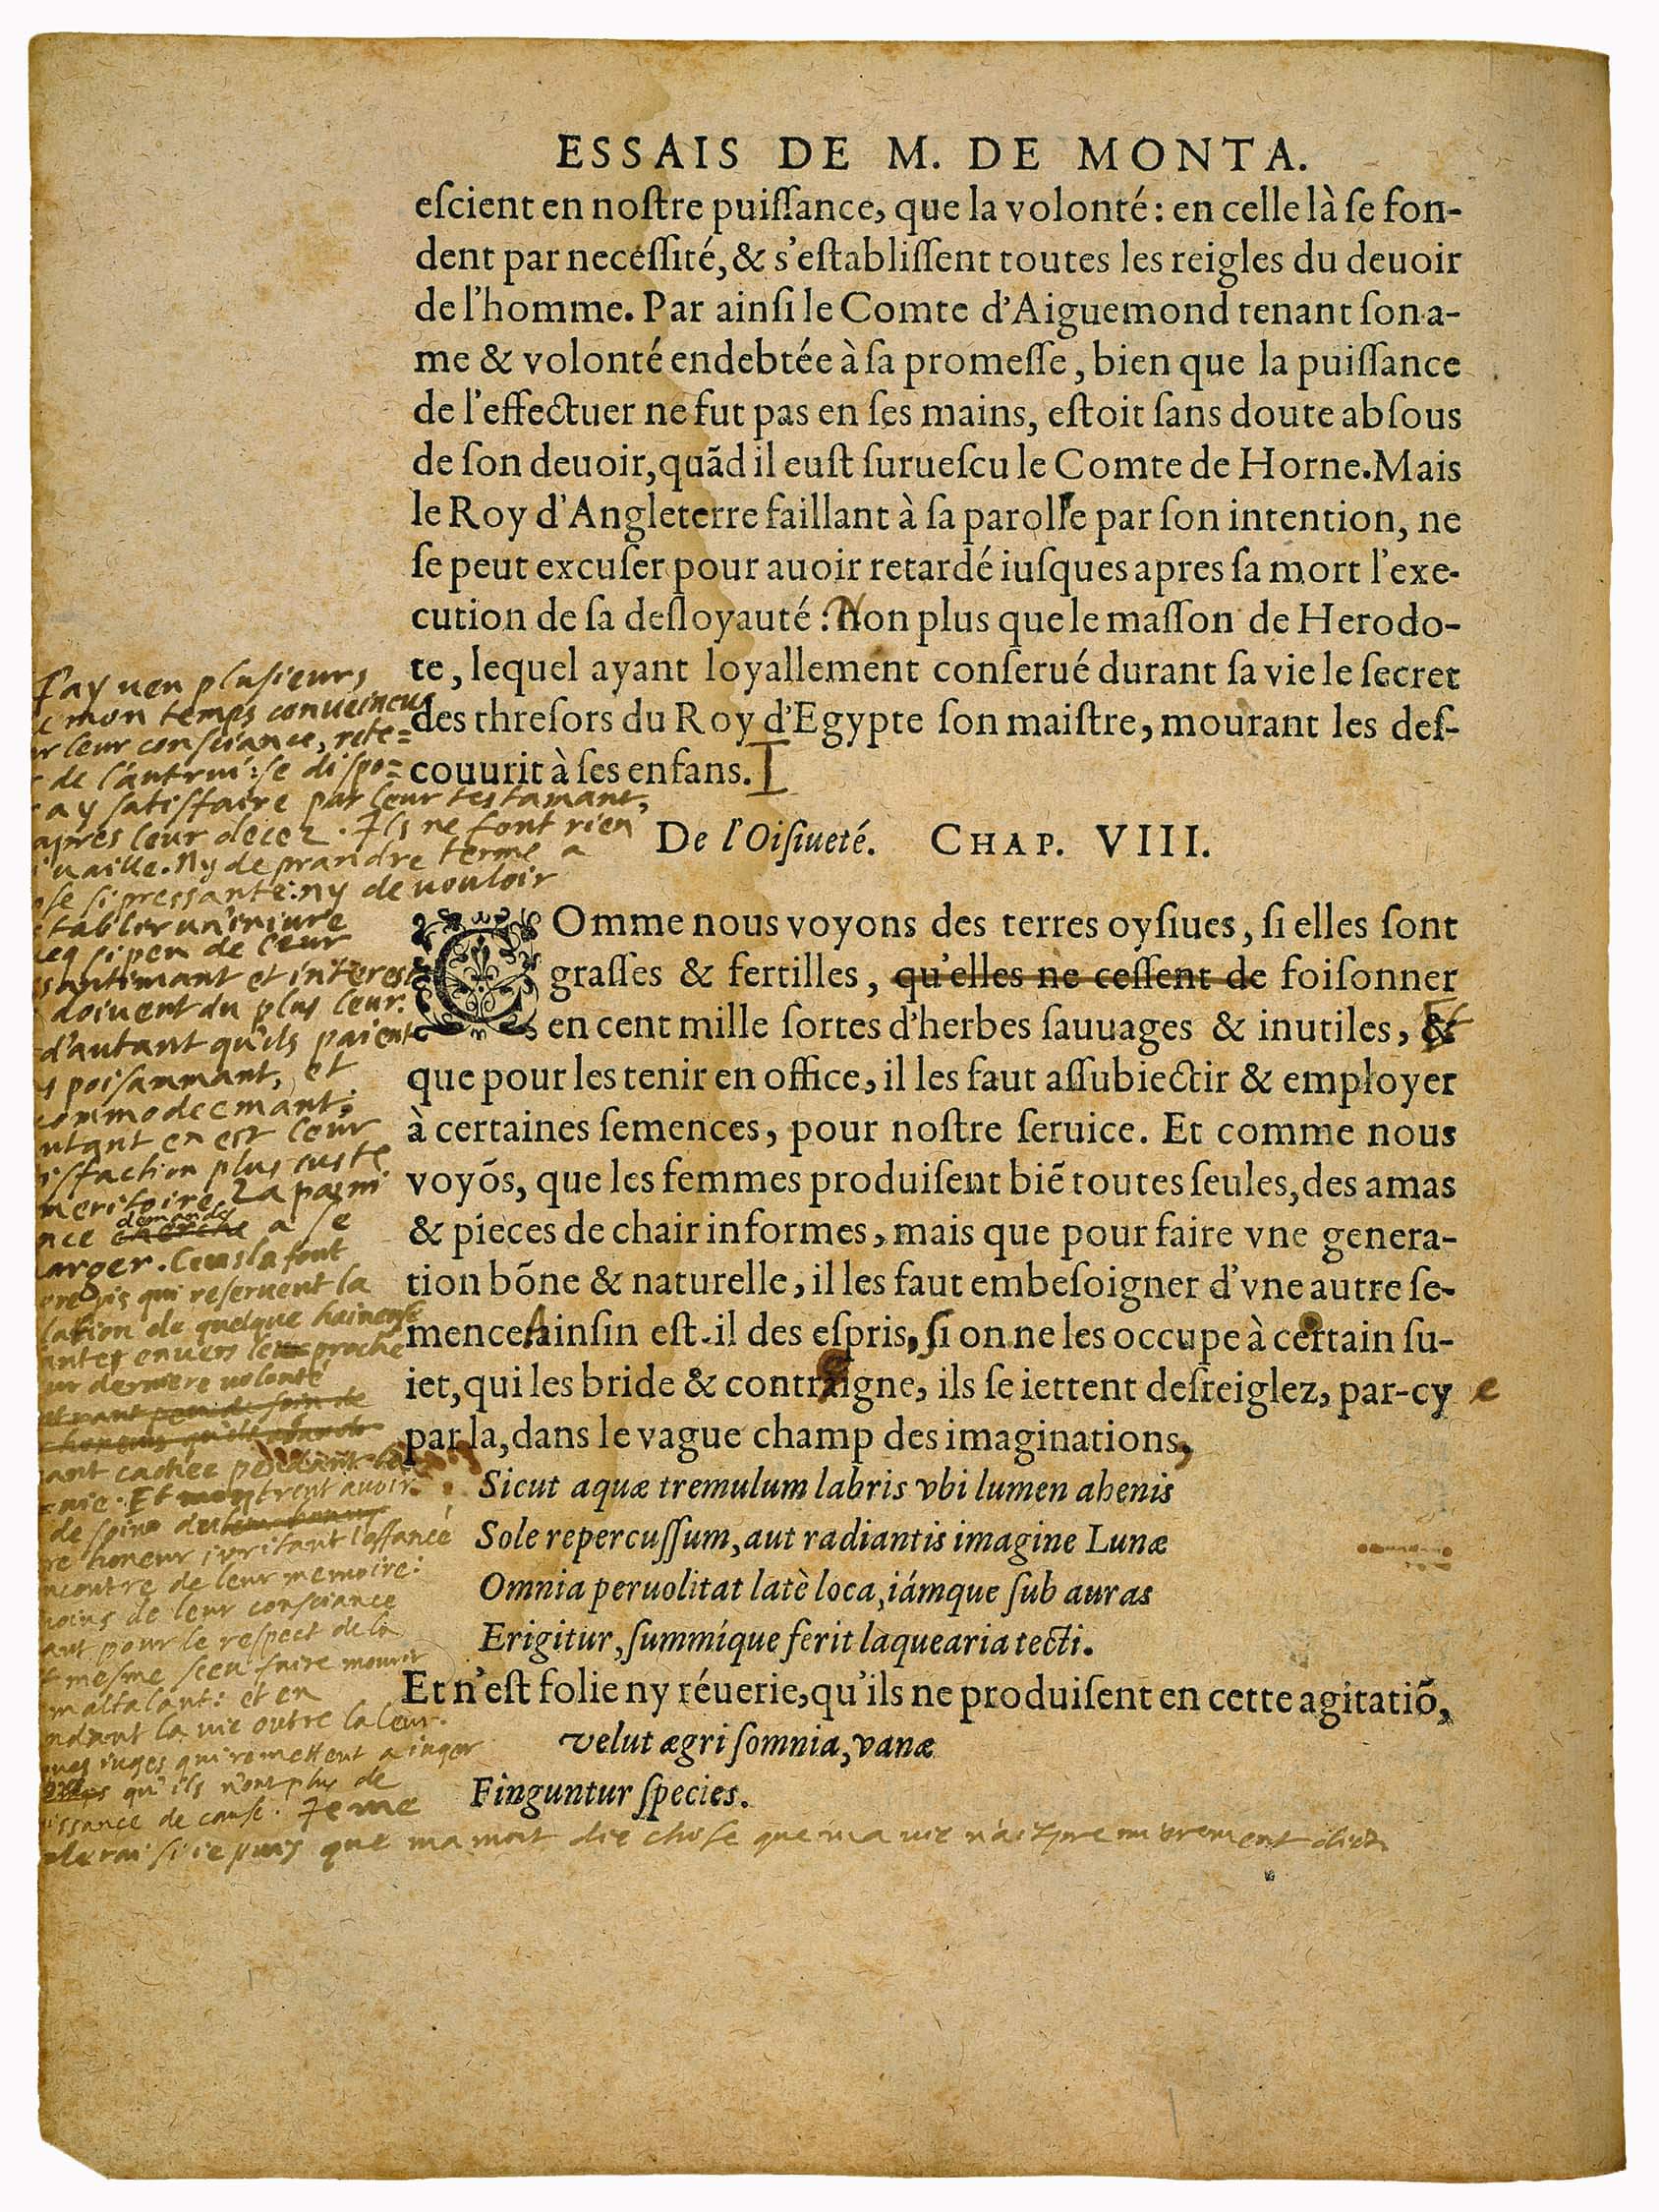 ESSAIS DE M. DE MONTA.
eſcient en noſtre puiſſance, que la volonté: en celle là ſe fon-
dent par neceſſité, & s'eſtabliſſent toutes les reigles du deuoir
de l'homme. Par ainſi le Comte d'Aiguemond tenant ſon a-
me & volonté endebtée à ſa promeſſe, bien que la puiſſance
de l'effectuer ne fut pas en ſes mains, eſtoit ſans doute abſous
de ſon deuoir, quãd il euſt ſurueſcu le Comte de Horne. Mais
le Roy d'Angleterre faillant à ſa parolle par ſon intention, ne
ſe peut excuſer pour auoir retardé iuſques apres ſa mort l'exe-
cution de ſa deſloyauté: Non plus que le maſſon de Herodo-
te, lequel ayant loyallement conſerué durant ſa vie le ſecret
des threſors du Roy d'Egypte ſon maiſtre, mourant les deſ-
couurit à ſes enfans. I
J'ay ueu plusieurs
mon temps conueincus
leur consciance, rete=
de l'autrui: se dispo=
ay satisfaire par leur testamant,
apres leur decez. Ils ne font rien
uaille. Ny de prandre terme a
si pressante: ny de uouloir
tablir un'iniure
si peu de leur
santimant et interest
doiuent du plus leur.
d'autant qu'ils paient
poisammant, et
commodeemant:
utant en est leur
isfaction plus iuste
meritoire. La paeni
nce cherche demande a se
arger. Ceus la font
pis qui reseruent la
lation de quelque haineuse
enuers le proche
ur derniere uolonté
cachee pendant la
uie. Et montrent auoir
de soin du
re honeur irritant l'offancé
ncontre de leur memoire:
moins de leur consciance
ant pour le respect de la
mesme sceu faire mourir
maltalant: et en
ndant la uie outre la leur.
iuges qui remettent a iuger
qu'ils n'ont plus de
issance de cause. Je me
derai si ie puis que ma mort die chose que ma uie n'ait premierement dict
De l'Oiſiueté. CHAP. VIII.
COmme nous voyons des terres oyſiues, ſi elles ſont
graſſes & fertilles, qu'elles ne ceſſent de foiſonner
en cent mille ſortes d'herbes ſauuages & inutiles, & Et
que pour les tenir en office, il les faut aſſubiectir & employer
à certaines ſemences, pour noſtre ſeruice. Et comme nous
voyõs, que les femmes produiſent biẽ toutes ſeules, des amas
& pieces de chair informes, mais que pour faire vne genera-
tion bõne & naturelle, il les faut embeſoigner d'vne autre ſe-
mence Ainſin eſt-il des eſpris, ſi on ne les occupe à certain ſu-
iet, qui les bride & contraigne, ils ſe iettent deſreiglez, par-cy e
par la, dans le vague champ des imaginations,
Sicut aquæ tremulum labris vbi lumen ahenis
Sole repercuſſum, aut radiantis imagine Lunæ
Omnia peruolitat latè loca, iámque ſub auras
Erigitur, ſummíque ferit laquearia tecti.
Et n'eſt folie ny réuerie, qu'ils ne produiſent en cette agitatiõ,
velut ægri ſomnia, vanæ
Finguntur ſpecies.